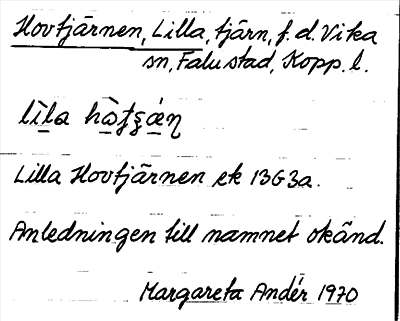 Hovtjärnen, Lilla, tjärn, f.d. Vika
sn, Falu stad, Kopp. l.
Lilla Hovtjärnen ek 13G3a.
Anledningen till namnet okänd.
Margareta Andér 1970